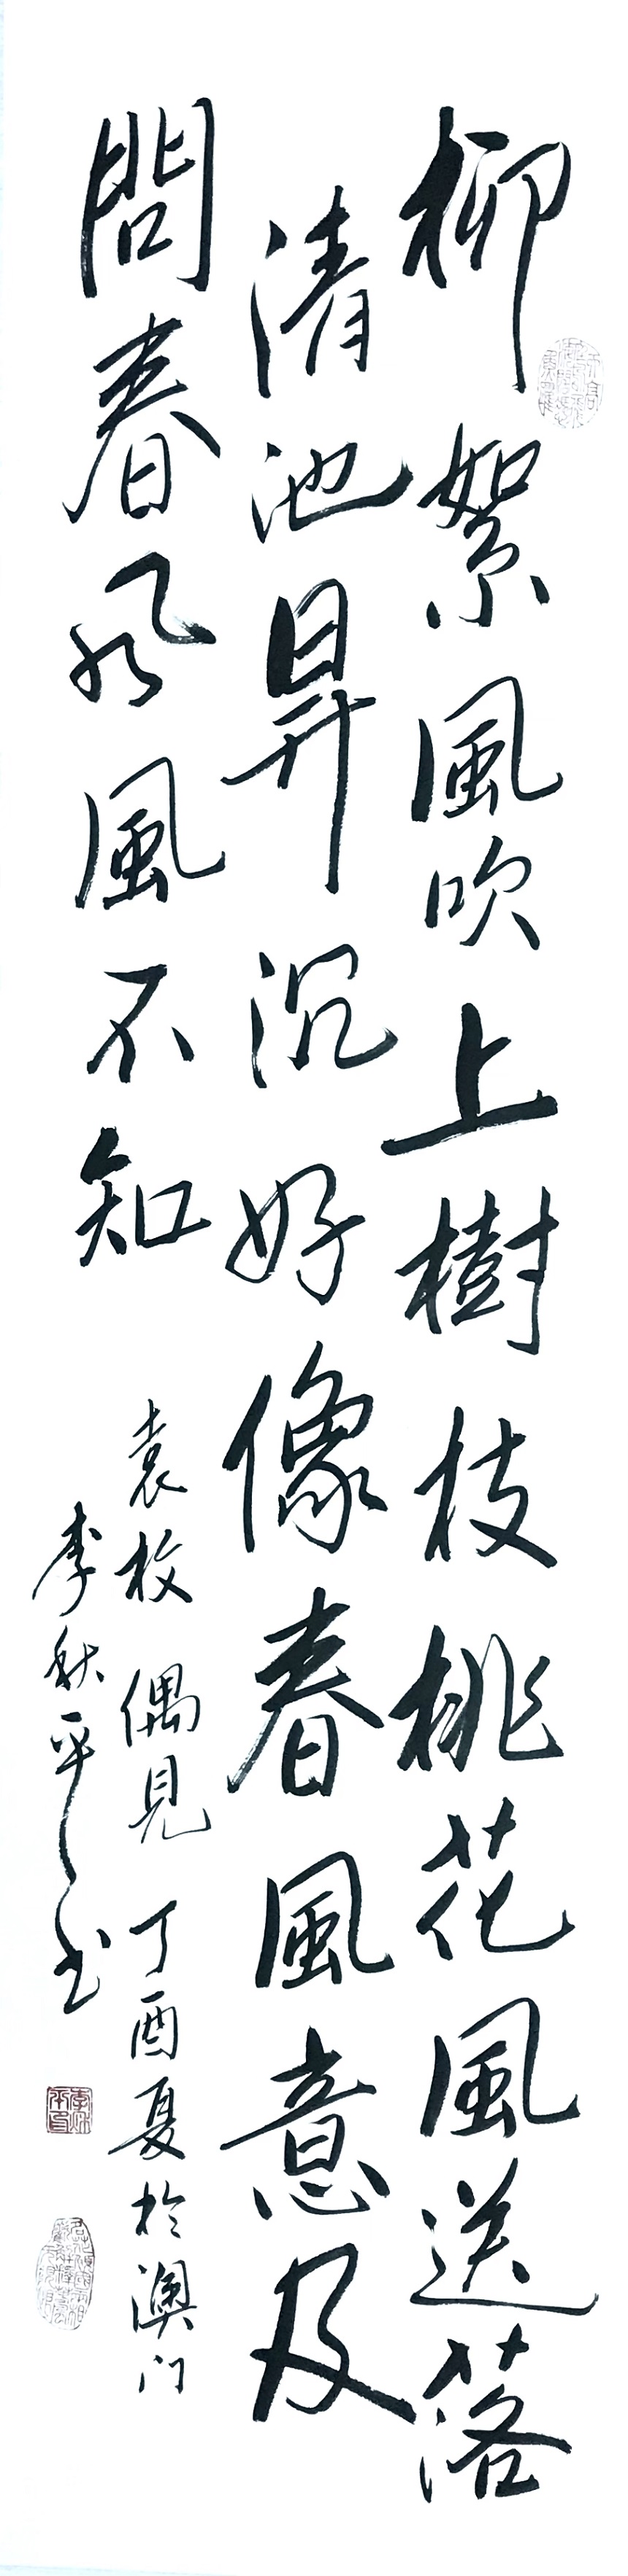 柳絮風吹上樹枝桃花風送落
清池昇沉好像春風意及
問春风風不知
袁枚 偶見 丁酉夏於澳门
李秋平书